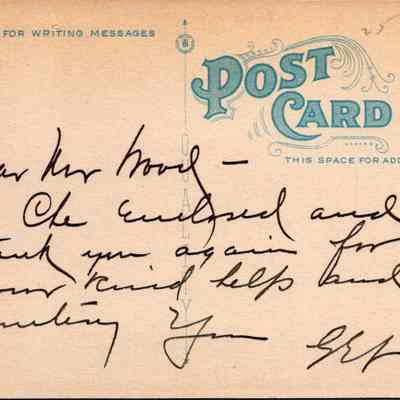 FOR WRITING MESSAGES
25
POST
CARD
THIS SPACE FOR ADD
ar Mr Wood –
Che enclosed and
ank you again for
our kind help and
Yrs